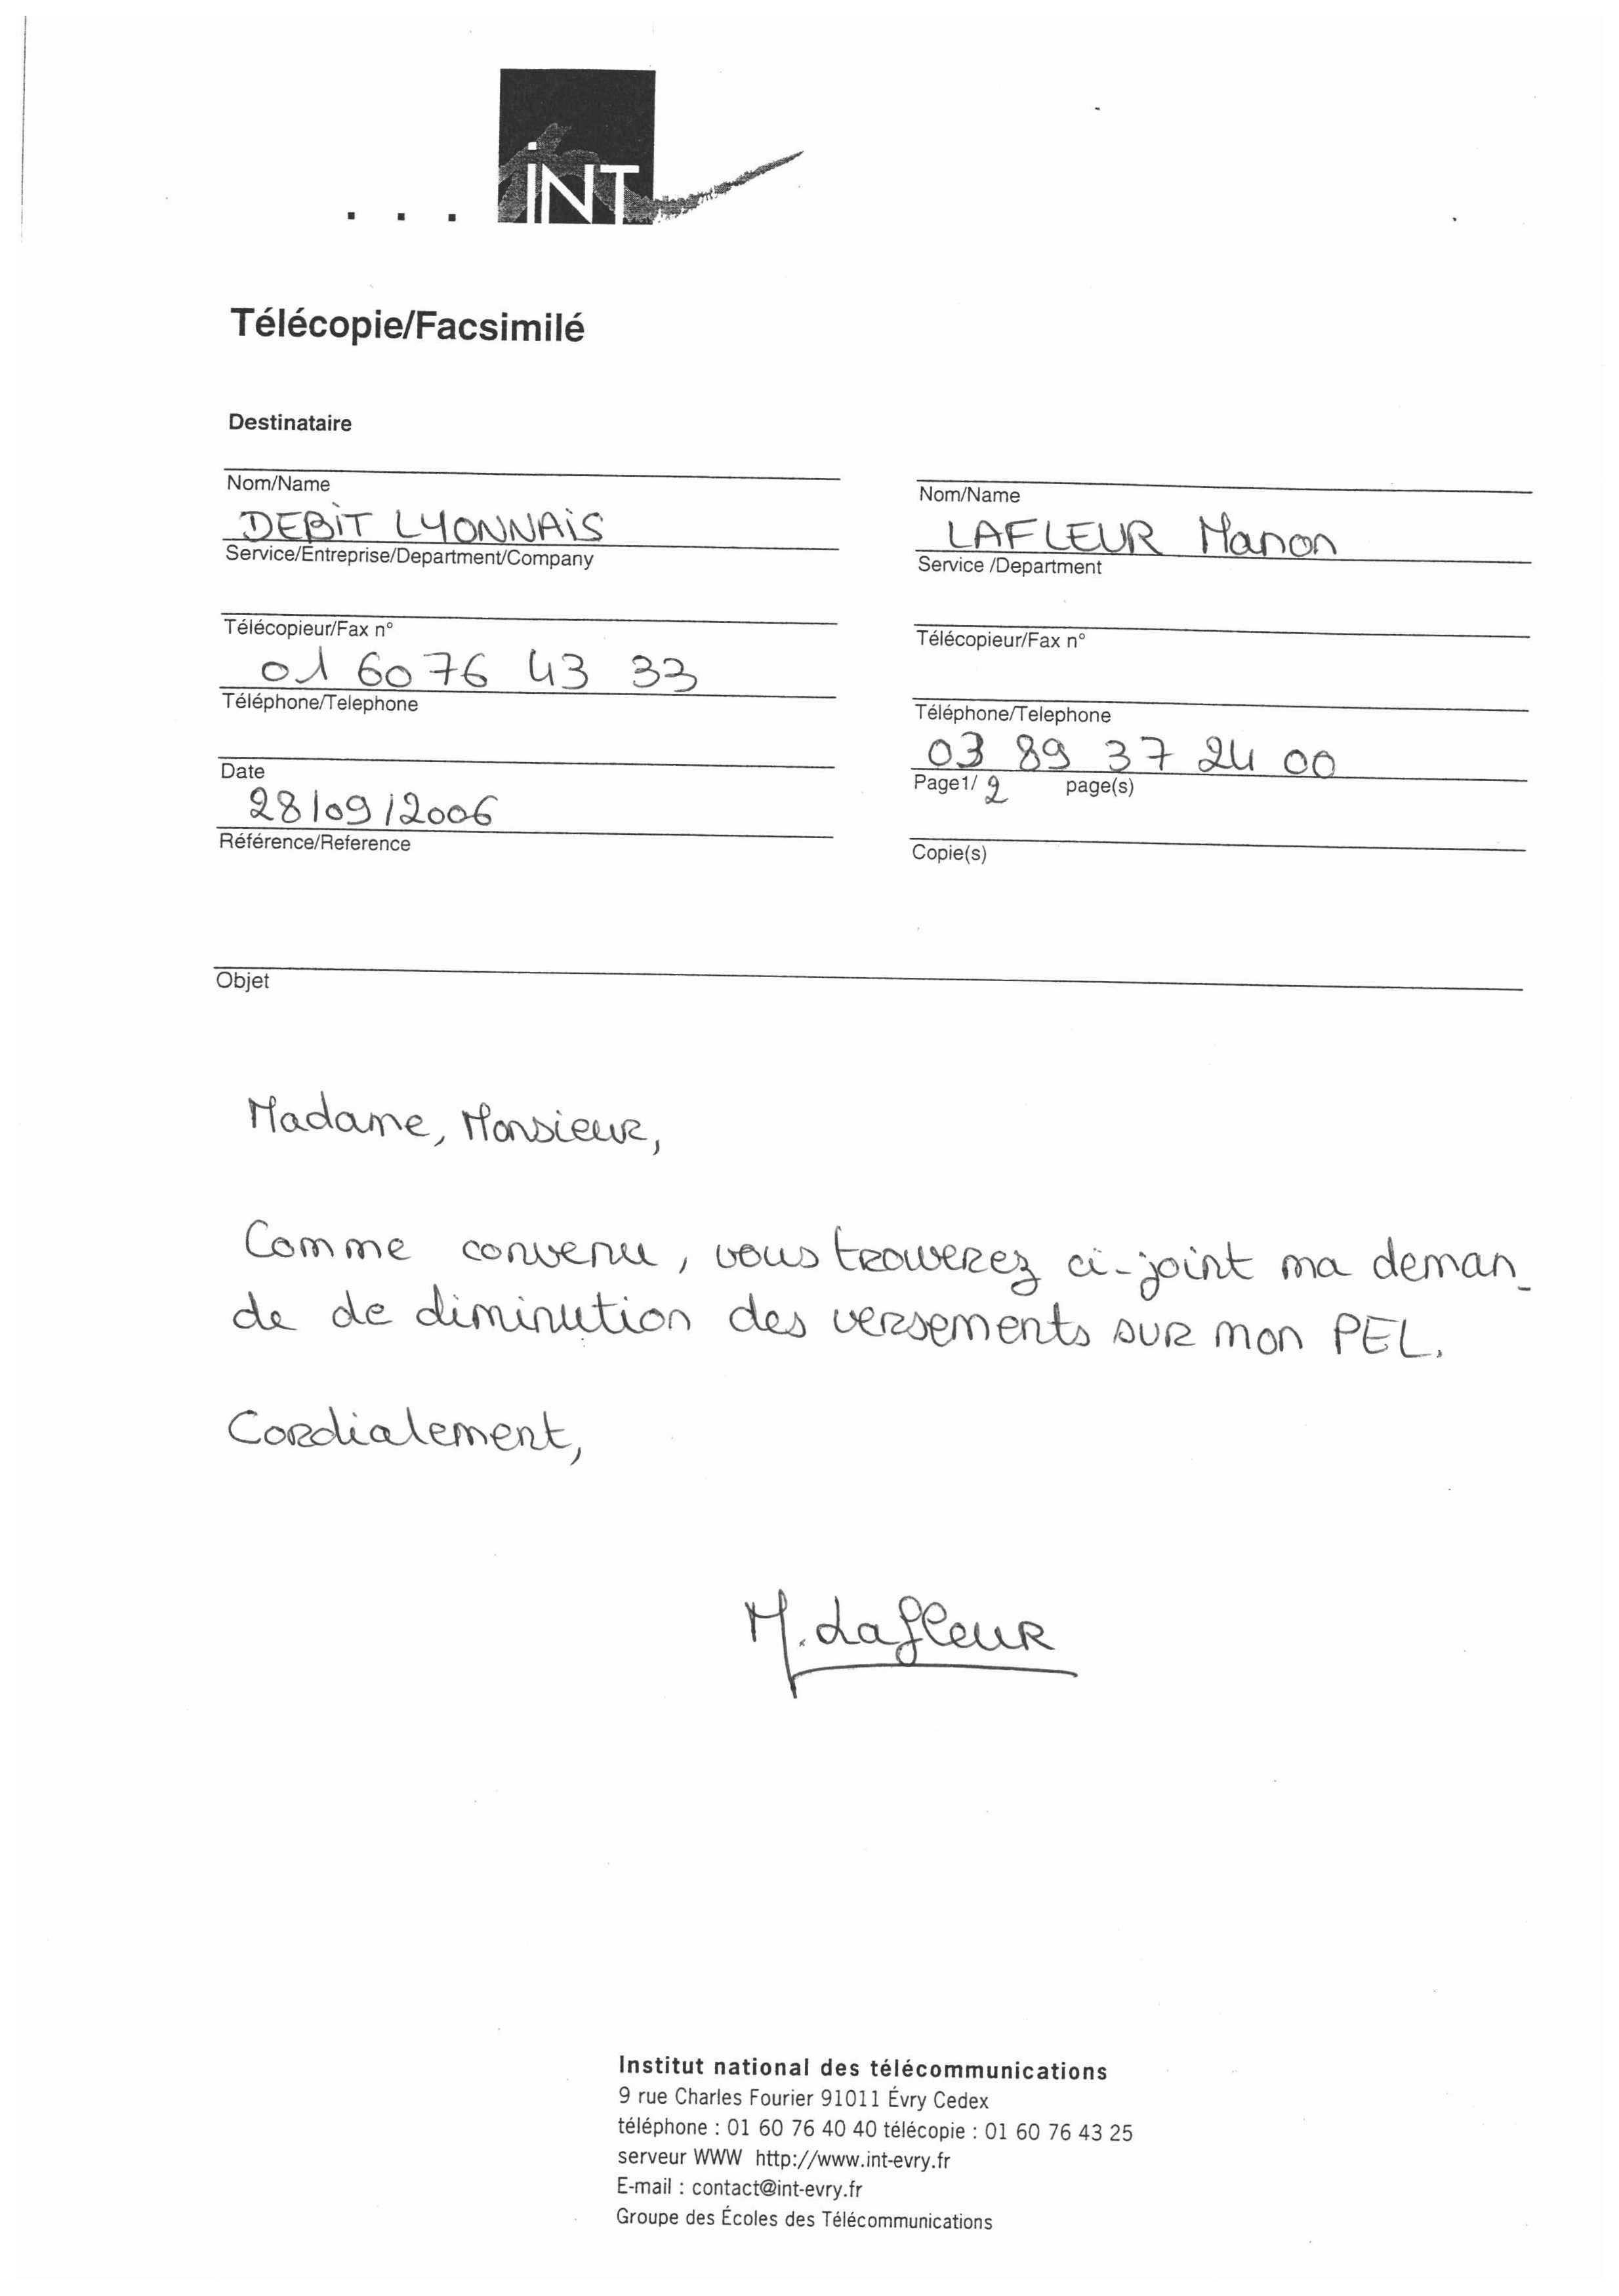 . . . iNT
Télécopie/Facsimilé
Destinataire
Nom/Name
DEBIT LYONNAIS
Service/Entreprise/Department/Company
Télécopieur/Fax n°
01 60 76 43 33
Téléphone/Telephone
Date
28/09/2006
Référence/Reference
Nom/Name
LAFLEUR Manon
Service /Department
Télécopieur/Fax n°
Téléphone/Telephone
03 89 37 24 00
Page1/ 2 page(s)
Copie(s)
Objet
Madame, Monsieur,
Comme convenu, vous trouverez ci-joint ma deman-
de de diminution des versements sur mon PEL.
Cordialement,
M. Lafleur
Institut national des télécommunications
9 rue Charles Fourier 91011 Évry Cedex
téléphone : 01 60 76 40 40 télécopie : 01 60 76 43 25
serveur WWW http://www.int-evry.fr
E-mail : contact@int-evry.fr
Groupe des Écoles des Télécommunications